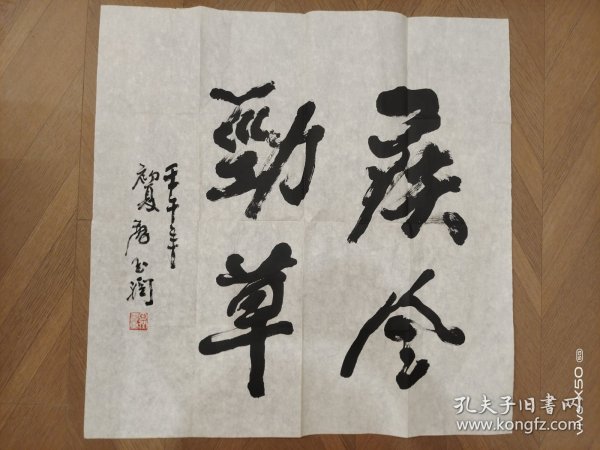 疾風
勁草
壬午年
初夏唐玉潤
孔夫子旧书网
www.kongfz.com
vivo X50